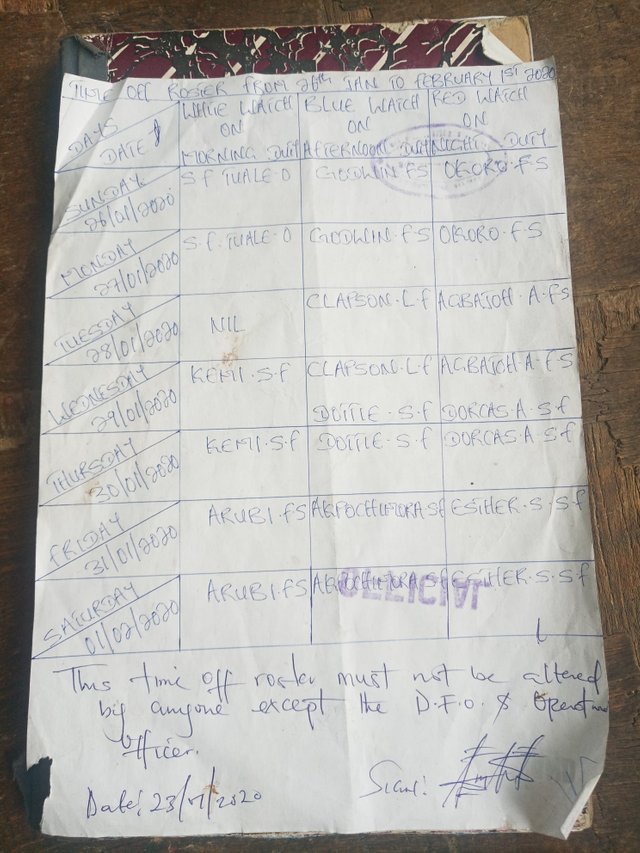 TIME OFF ROSTER FROM 26TH JAN TO FEBRUARY 1ST 2020
DAYS DATE WHITE WATCH ON MORNING DUTY BLUE WATCH ON AFTERNOON DUTY RED WATCH ON NIGHT DUTY
SUNDAY 26/01/2020 S.F TUALE O GODWIN FS OKORO.F.S
MONDAY 27/01/2020 S.F. TUALE.O GODWIN.F.S OKORO.F.S
TUESDAY 28/01/2020 NIL CLAPSON.L.F AGBAJOH A.FS
WEDNESDAY 29/01/2020 KEMI.S.F CLAPSON.L.F AGBAJOH A.FS
DOTTIE.S.F DORCAS.A S.F
THURSDAY 30/01/2020 KEMI.S.F DOTTIE.S.F DORCAS.A S.F
FRIDAY 31/01/2020 ARUBI.FS ESTHER.S.SF
SATURDAY 01/02/2020 ARUBI.FS ESTHER.S.SF
OFFICIAL
This time off roster must not be altered
by anyone except the D.F.O & Operations
Officer.
Date: 23/01/2020 Sign: